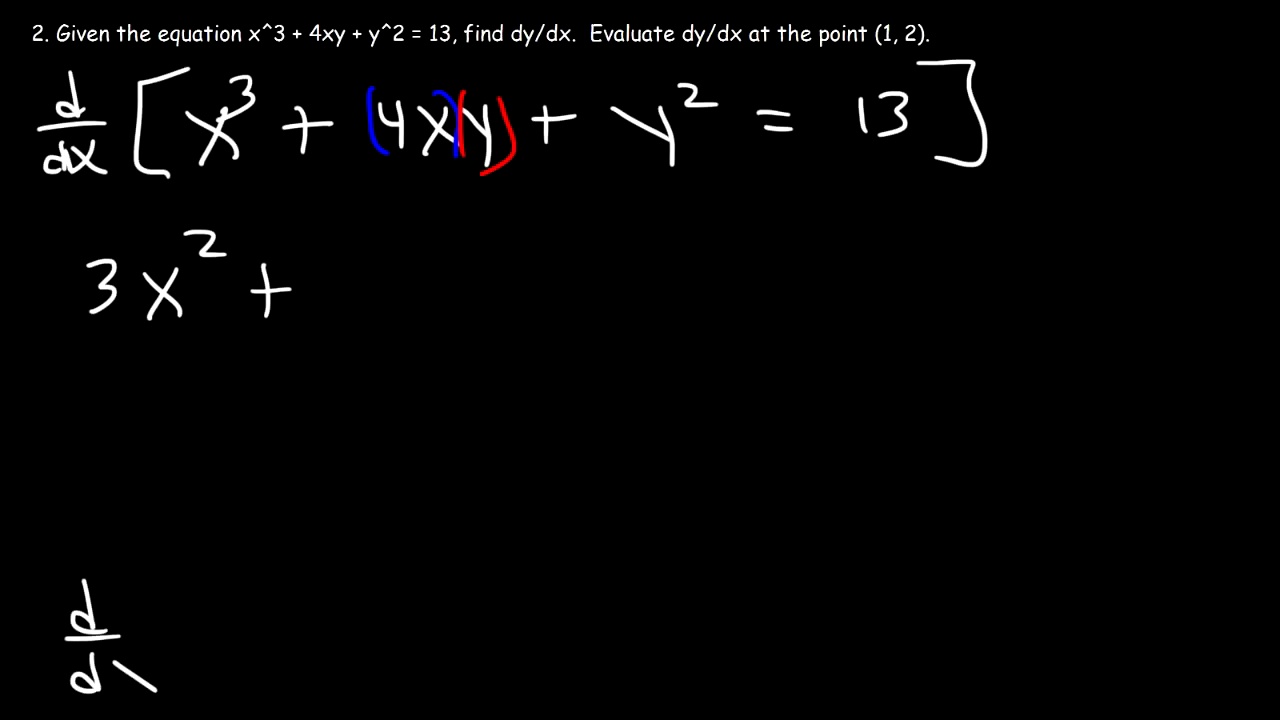 2. Given the equation x^3 + 4xy + y^2 = 13, find dy/dx. Evaluate dy/dx at the point (1, 2).
d/dx [x³ + (4x)(y) + y² = 13]
3x² +
d/d